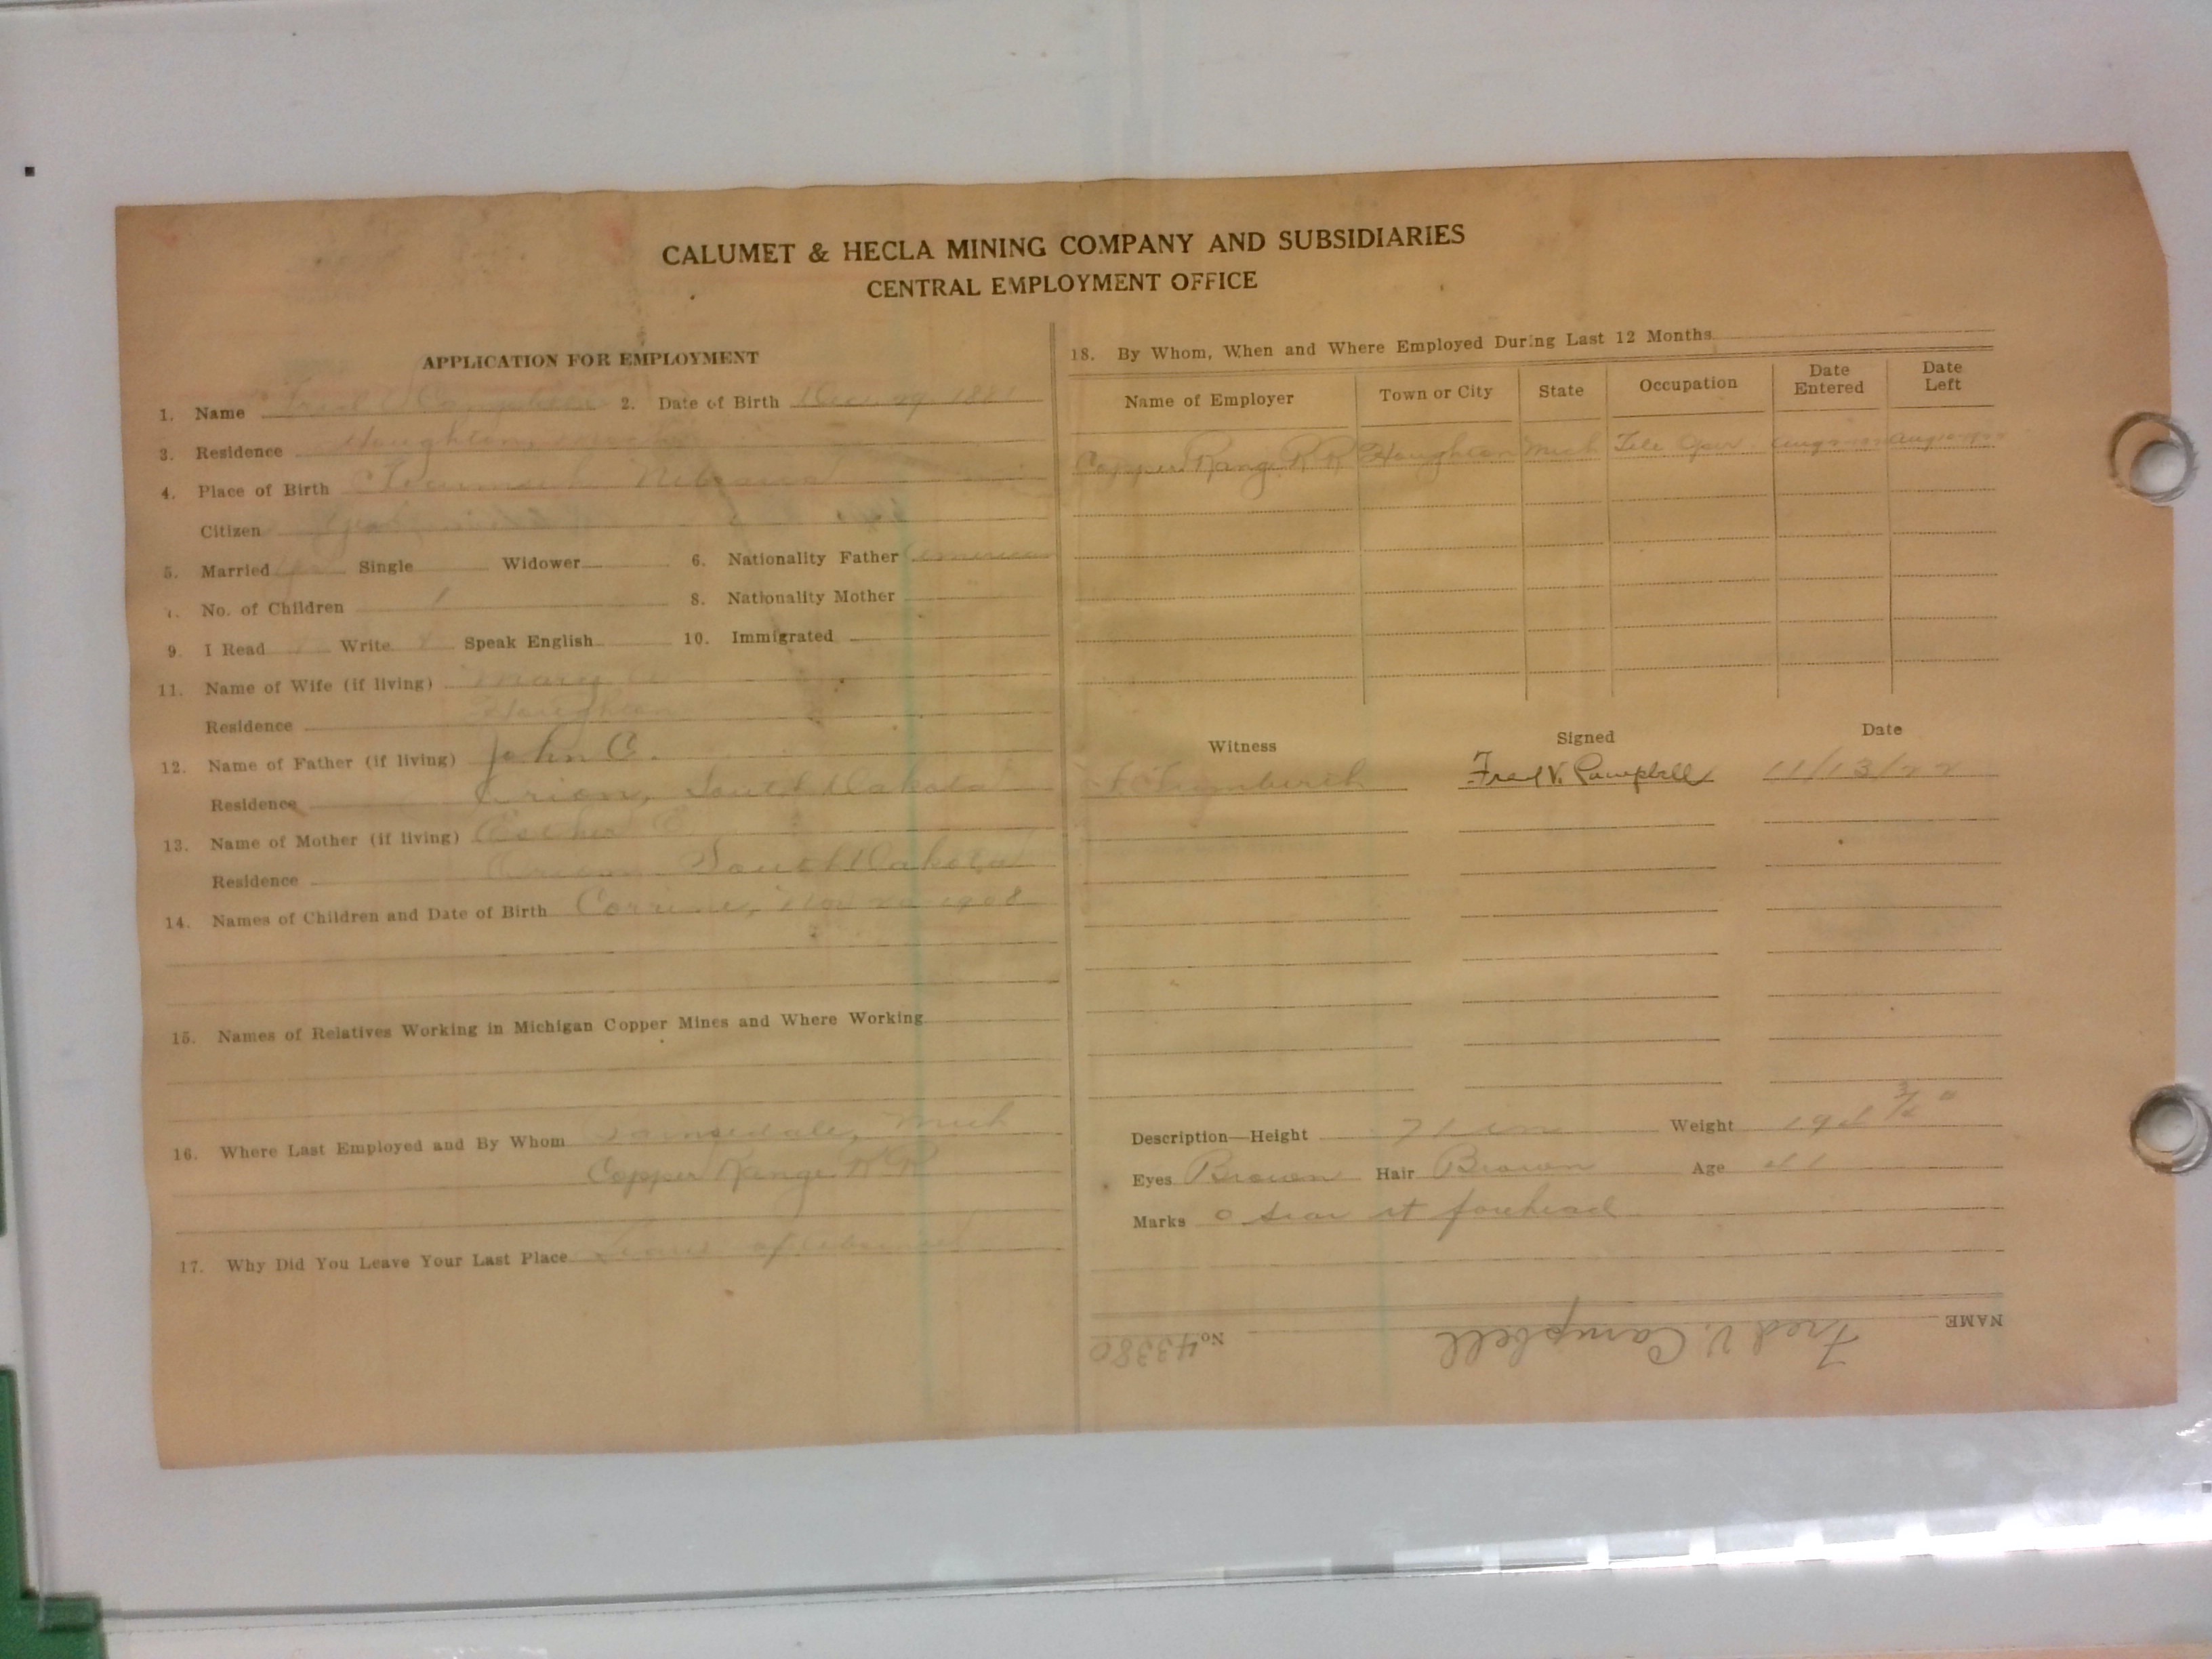 CALUMET & HECLA MINING COMPANY AND SUBSIDIARIES
CENTRAL EMPLOYMENT OFFICE
APPLICATION FOR EMPLOYMENT
1. Name Fred V Campbell 2. Date of Birth 1881
3. Residence Houghton, Mich
4. Place of Birth Tecumseh Nebraska
Citizen
5. Married Single Widower 6. Nationality Father American
7. No. of Children 1 8. Nationality Mother
9. I Read Write Speak English 10. Immigrated
11. Name of Wife (if living) Mary
Residence Houghton
12. Name of Father (if living) John C.
Residence Orion, South Dakota
13. Name of Mother (if living) Esther E
Residence Orion South Dakota
14. Names of Children and Date of Birth Corrine, Nov 20 1908
15. Names of Relatives Working in Michigan Copper Mines and Where Working
16. Where Last Employed and By Whom Painesdale, Mich
Copper Range R R
17. Why Did You Leave Your Last Place Leave of absence
18. By Whom, When and Where Employed During Last 12 Months
Name of Employer Town or City State Occupation Date Entered Date Left
Copper Range R R Houghton Mich Tele Oper
Witness Signed Date
Fred V. Campbell 11/13/22
Description—Height 71 in Weight
Eyes Brown Hair Brown Age 41
Marks scar rt forehead
NAME Fred V. Campbell No. 43380